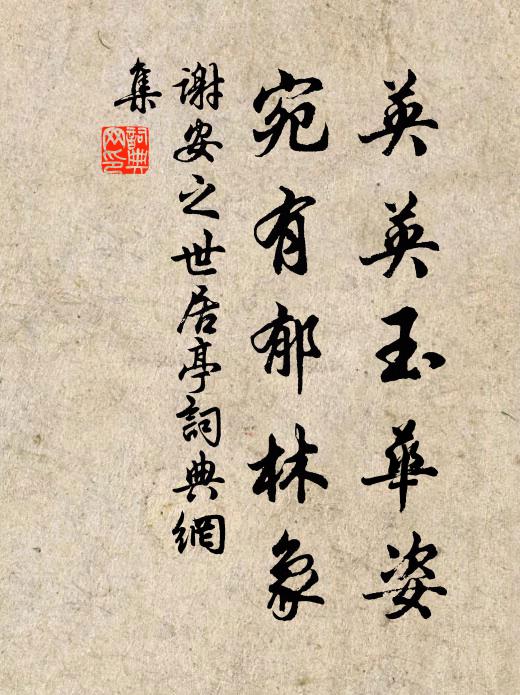 英英玉華姿
宛有郁林象
謝安之世居亭詞典網
集
詞典
网印